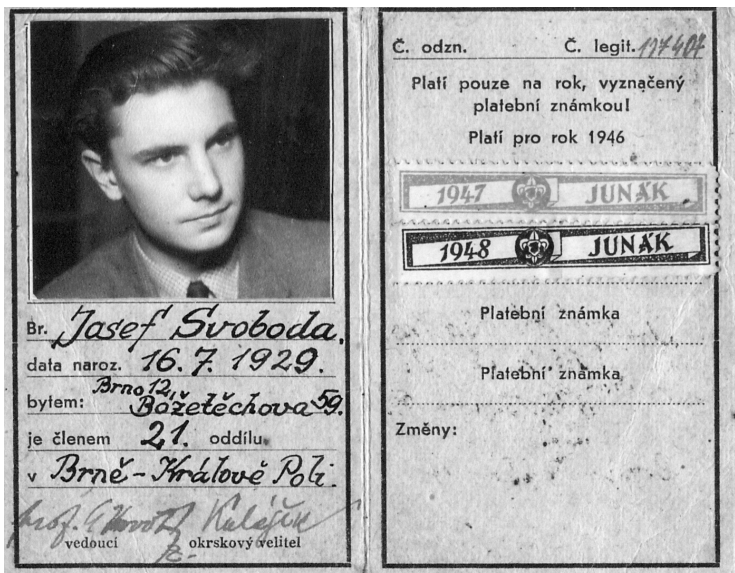 Br. Josef Svoboda.
data naroz. 16.7.1929.
Brno 12,
bytem: Božetěchova 59.
je členem 21. oddílu
v Brně-Králově Poli.
prof.
vedoucí okrskový velitel
Č. odzn. Č. legit. 117407
Platí pouze na rok, vyznačený
platební známkou!
Platí pro rok 1946
1947 JUNÁK
1948 JUNÁK
Platební známka
Platební známka
Změny: